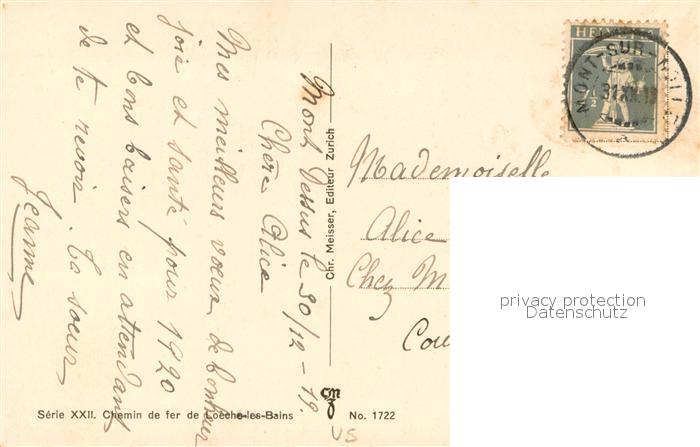 Mont Dessus le 30/12-19.
Chère Alice
Mes meilleurs voeux de bonheur
joie et santé pour 1920
et bons baisers en attendant
de te revoir. Ta soeur
Jeanne
Chr. Meisser, Editeur Zurich
HELVETIA
MONT-SUR-ROLLE
31.XII.19
Mademoiselle
Alice
Chez M
Cou
privacy protection
Datenschutz
Série XXII. Chemin de fer de Loèche-les-Bains
cm
No. 1722
VS